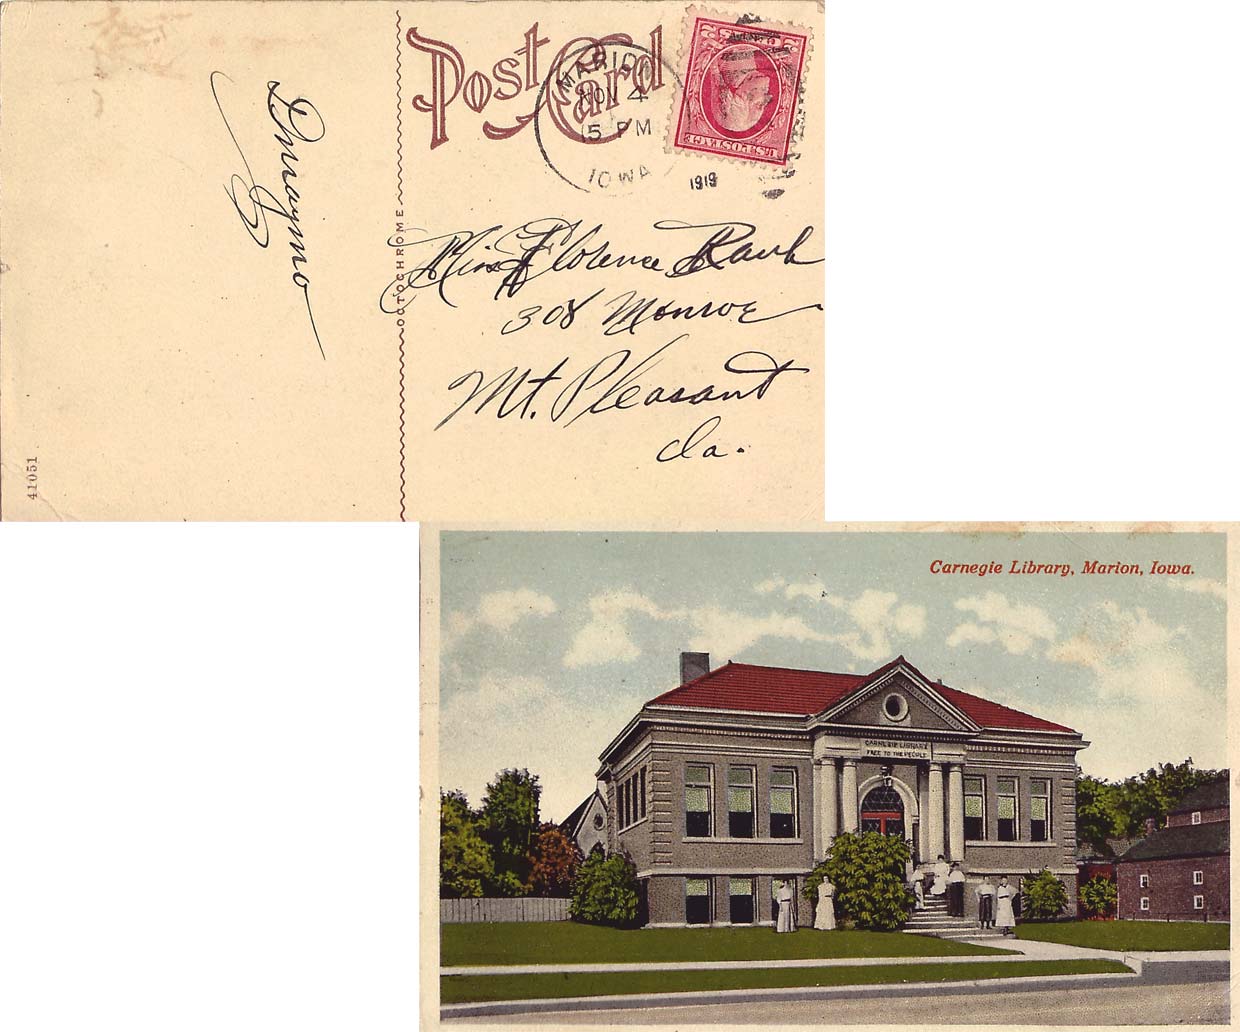 Post Card
MARION
NOV 4
5 PM
IOWA
1919
U.S. POSTAGE
OCTOCHROME
41051
Miss Florence
308 Monroe
Mt. Pleasant
Ia.
Carnegie Library, Marion, Iowa.
CARNEGIE LIBRARY
FREE TO THE PEOPLE